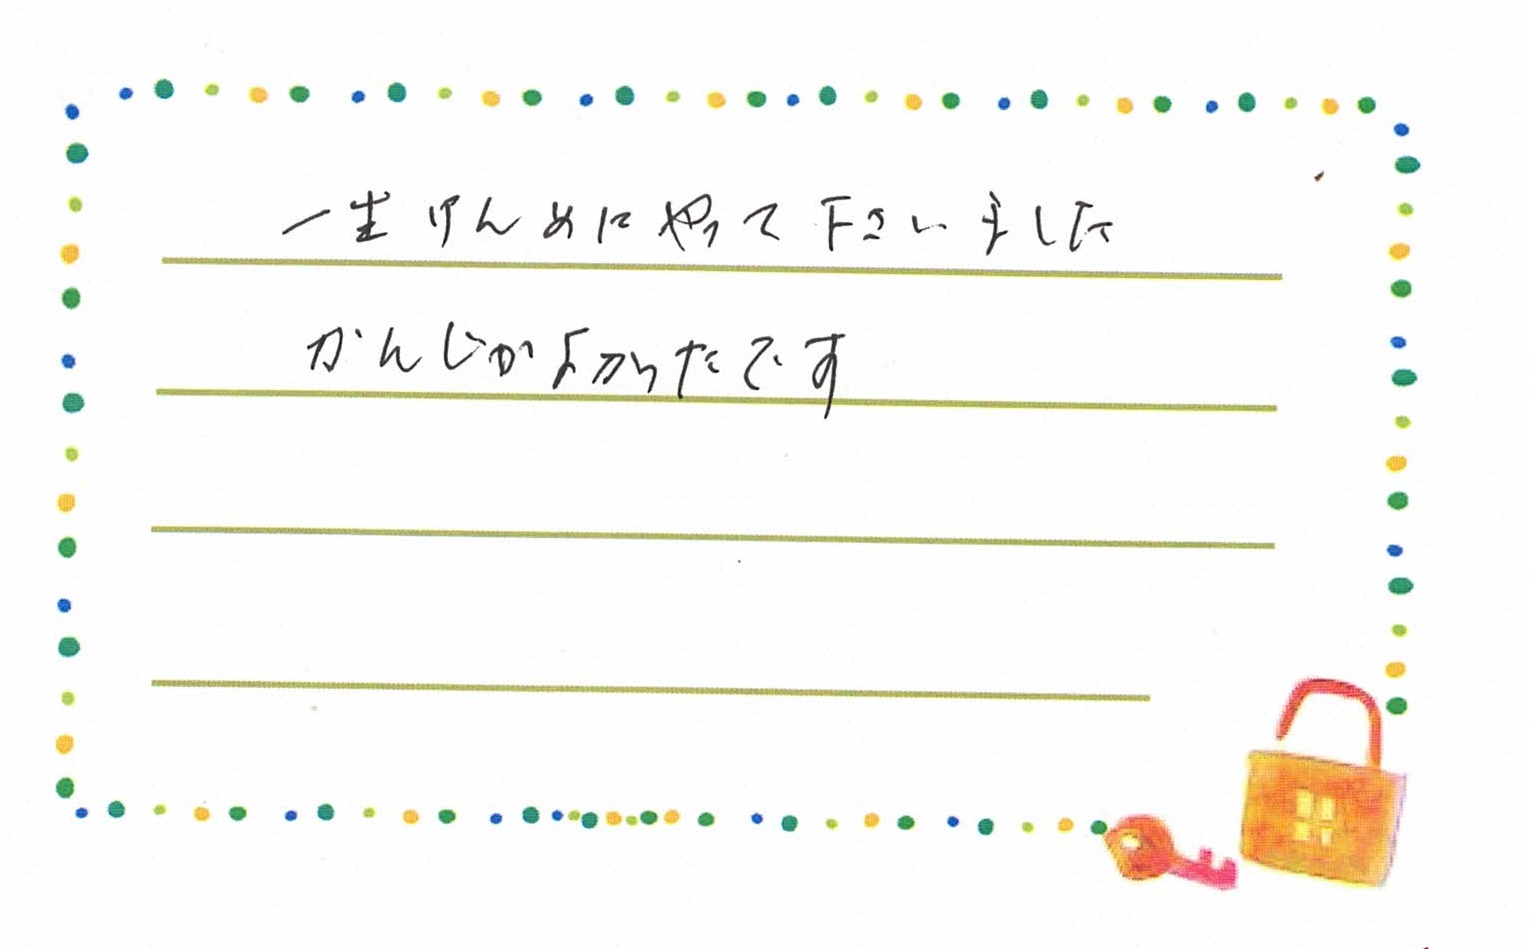 一生けんめにやって下さいました
かんじがよかったです